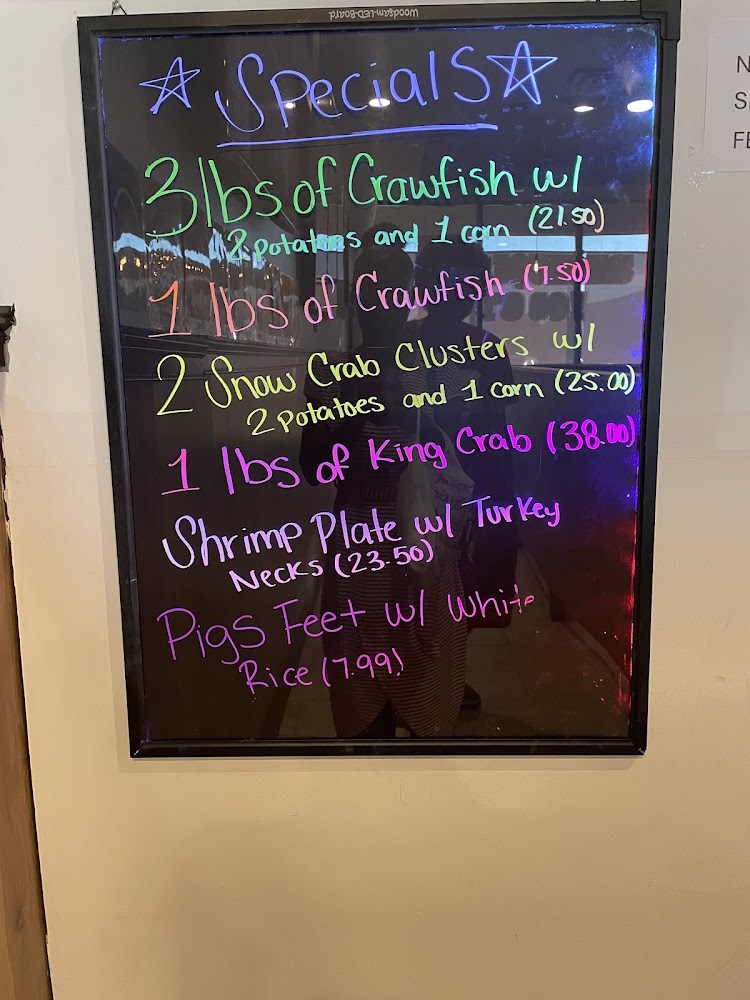 Woodsam-LED-Board
Specials
3 lbs of Crawfish w/
2 potatoes and 1 corn (21.50)
1 lbs of Crawfish (7.50)
2 Snow Crab Clusters w/
2 potatoes and 1 corn (25.00)
1 lbs of King Crab (38.00)
Shrimp Plate w/ Turkey
Necks (23.50)
Pigs Feet w/ White
Rice (7.99)